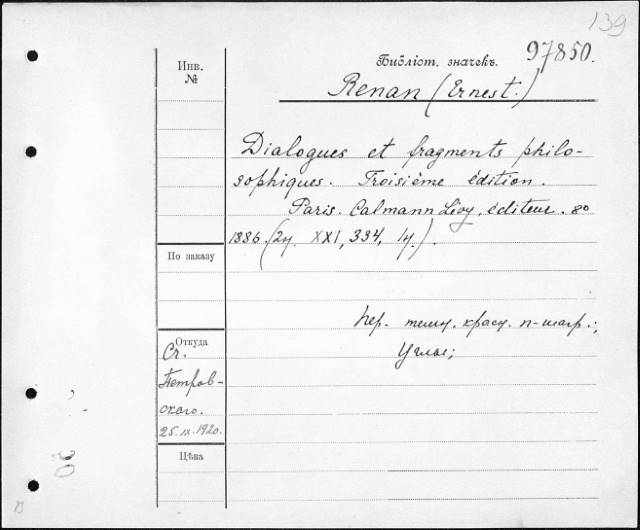 139
Инв. №
Библіот. значекъ. 97850.
Renan (Ernest.)
Dialogues et fragments philo-
sophiques. Troisième édition.
Paris. Calmann Lévy, éditeur. 8o
1886. (2н. XXI, 334, 1н.).
По заказу
пер. темн. красн. п-шагр.;
Углы;
Откуда
Ст.
Петров-
ского.
25.IX.1920.
Цѣна
20
B